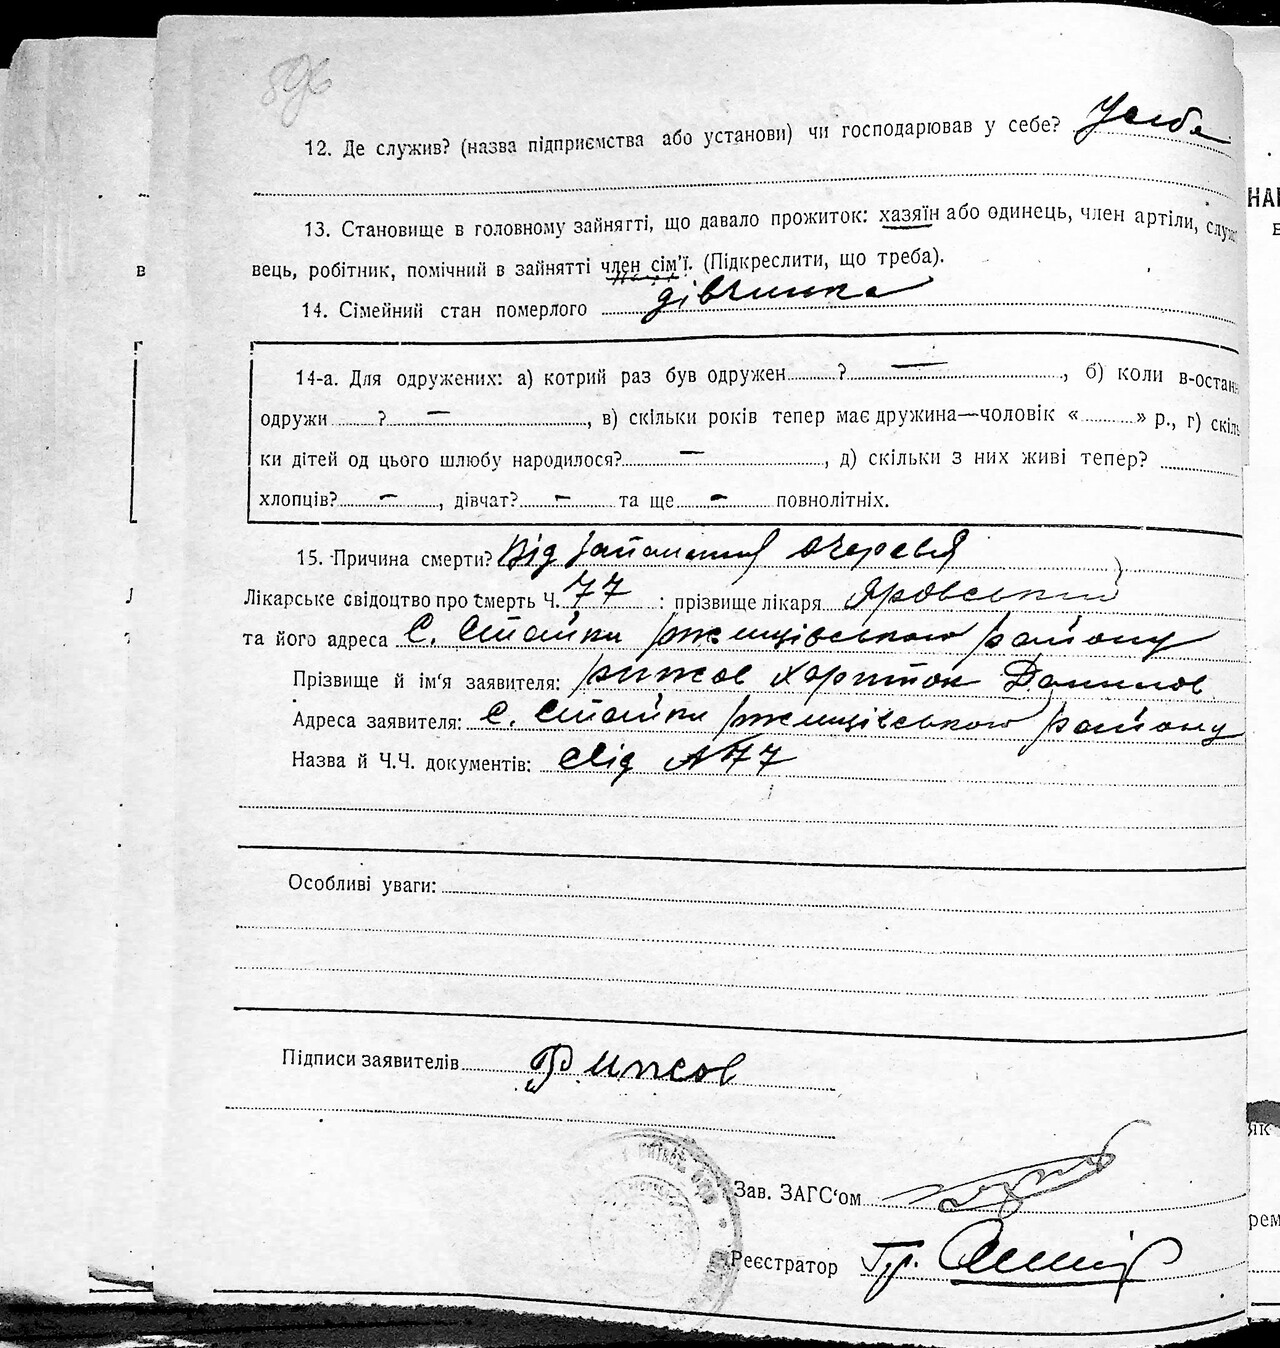 12. Де служив? (назва підприємства або установи) чи господарював у себе? У себе
13. Становище в головному зайнягті, що давало прожиток: хазяїн або одинець, член артіли, служ
вець, робітник, помічний в зайнятті член сім'ї. (Підкреслити, що треба).
14. Сімейний стан померлого дівчинка
14-а. Для одружених: а) котрий раз був одружен ? —, б) коли в-остан
одружи ? —, в) скільки років тепер має дружина—чоловік « » р., г) скіль
ки дітей од цього шлюбу народилося? —, д) скільки з них живі тепер?
хлопців? —, дівчат? — та ще — повнолітніх.
15. Причина смерти? Від запалення очеревя
Лікарське свідоцтво про смерть Ч. 77 : прізвище лікаря Яровський
та його адреса С. Стайки ржищівського району
Прізвище й ім'я заявителя: рижов Харитон Данилов
Адреса заявителя: С. Стайки ржищівського району
Назва й Ч.Ч. документів: свід №77
Особливі уваги:
Підписи заявителів Рижов
Зав. ЗАГС'ом
Реєстратор
НАР
в
як
рем